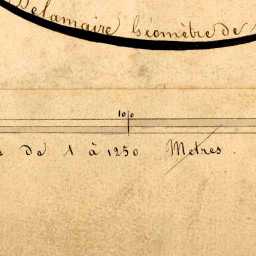 Delamaire Géomètre de
100
de 1 à 1250 Metres.